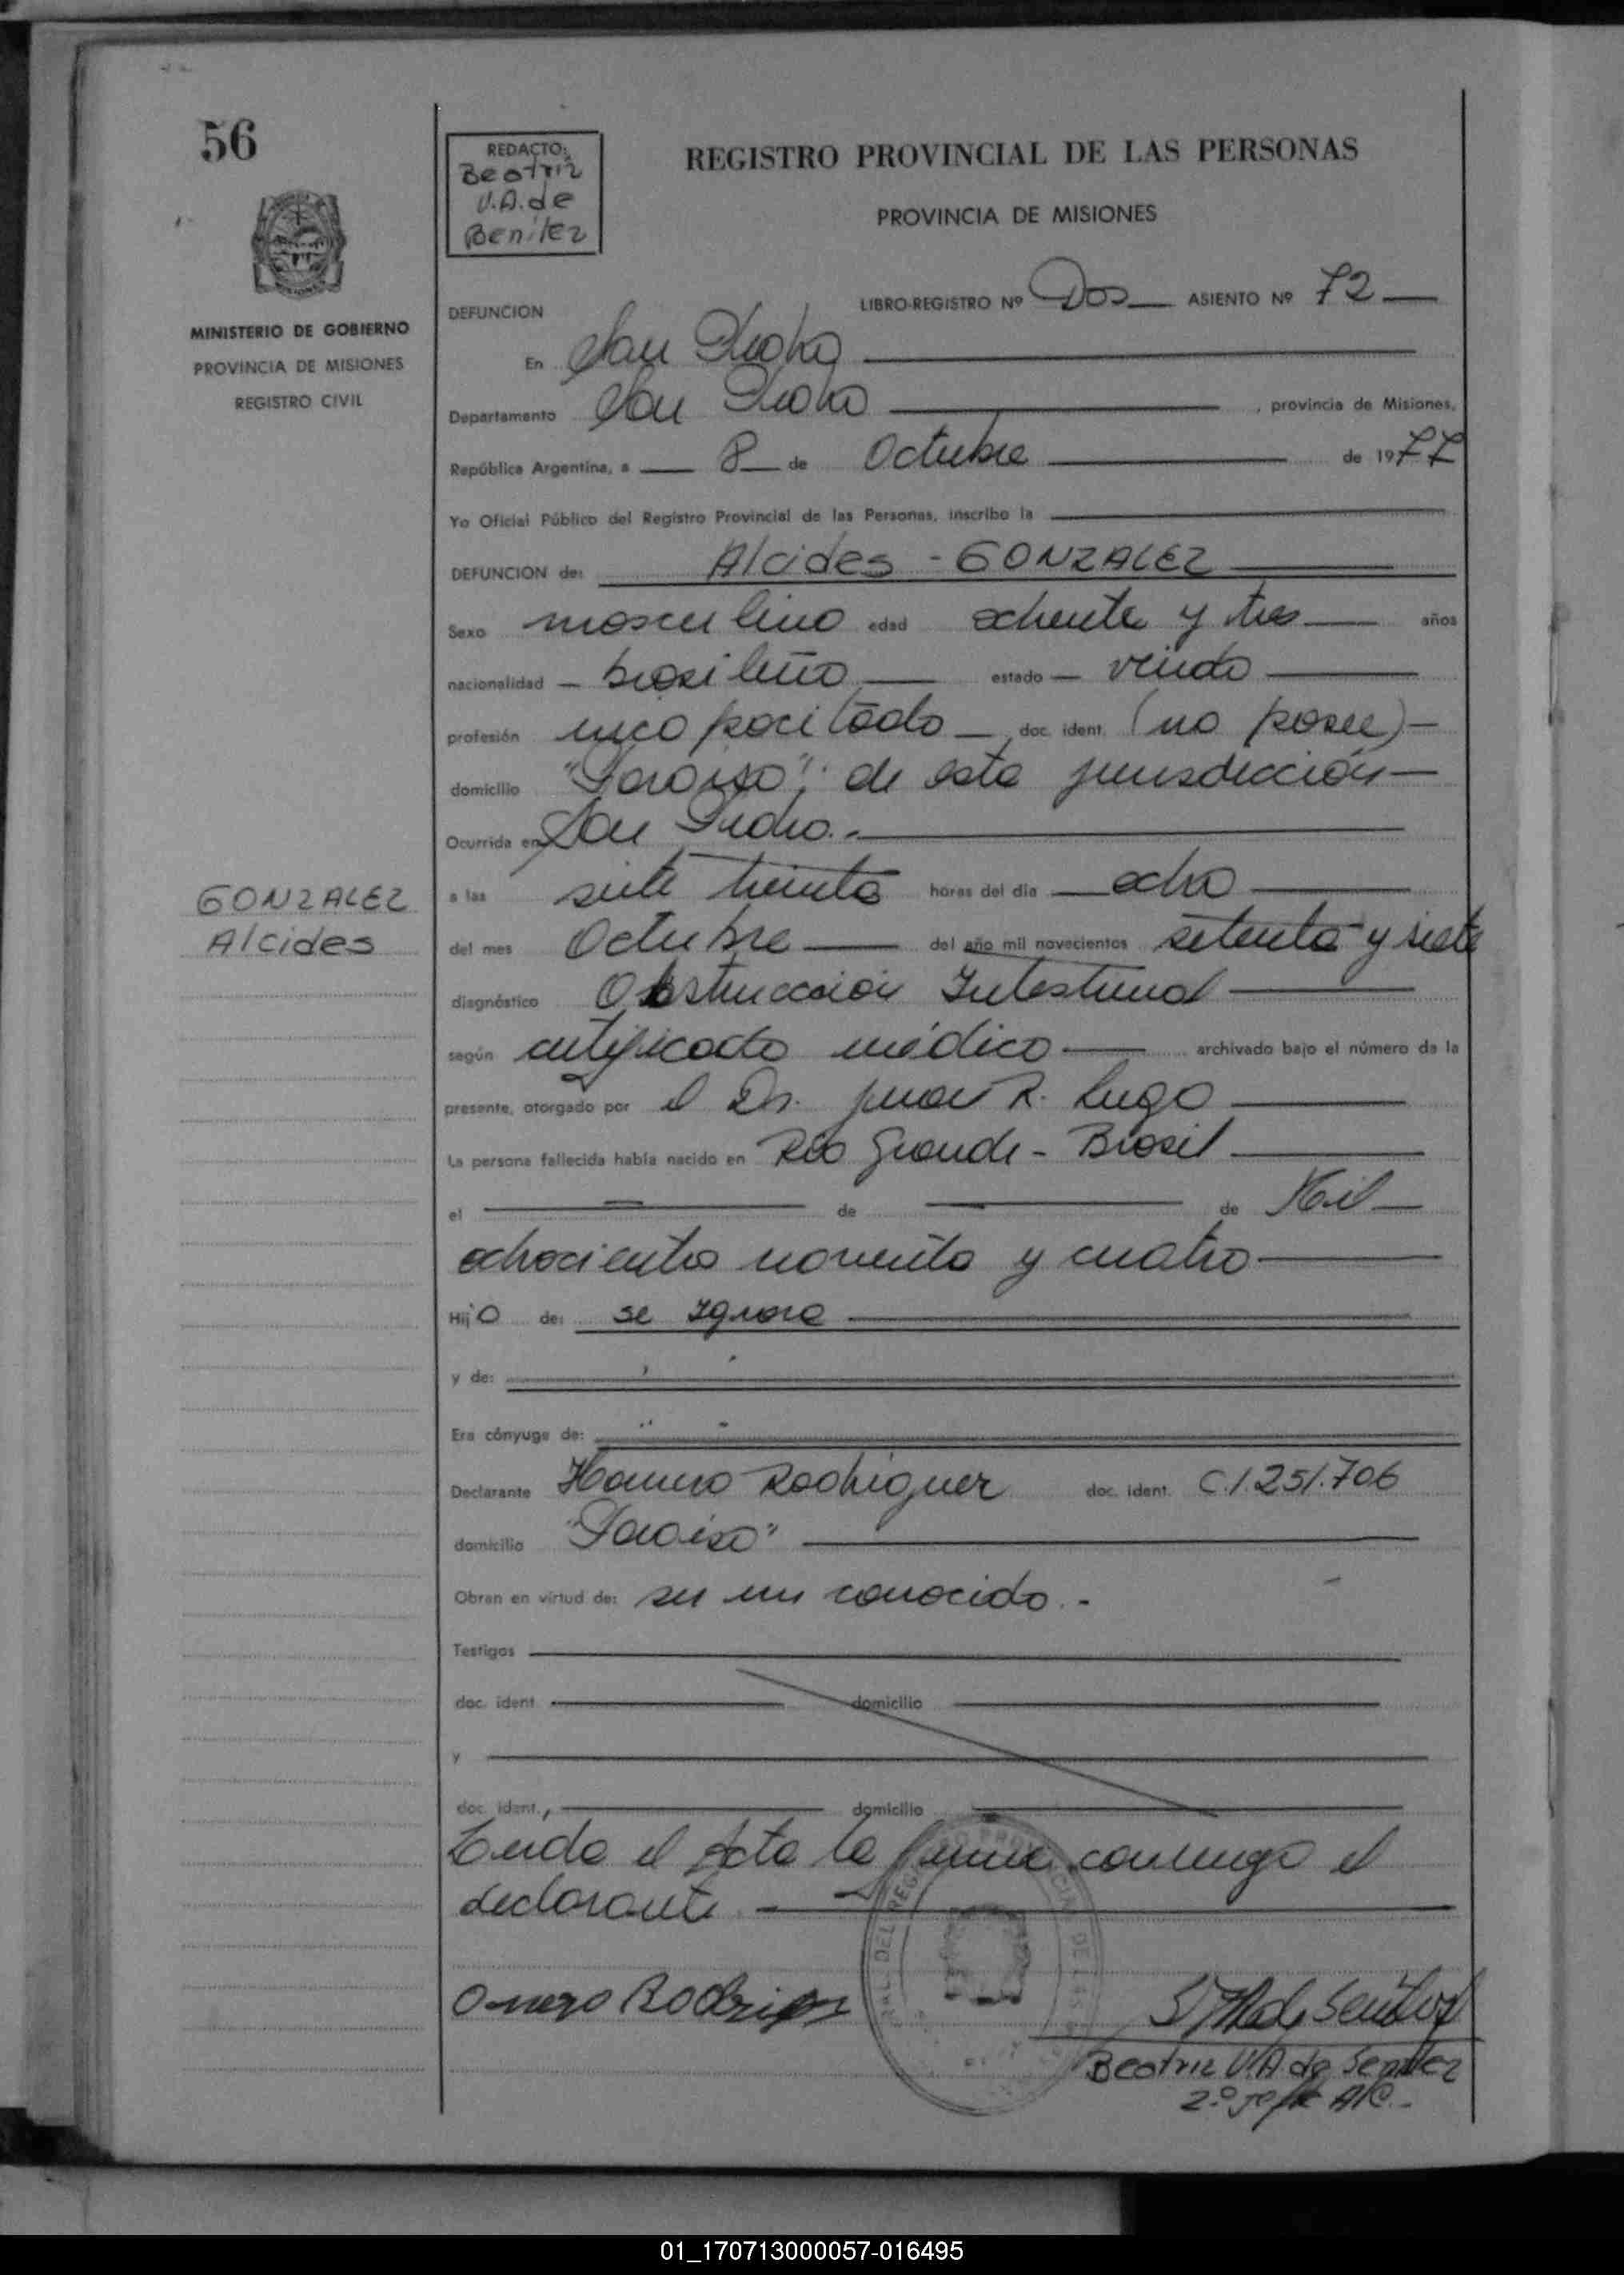 56
REDACTO:
Beatriz
V.A. de
Benitez
REGISTRO PROVINCIAL DE LAS PERSONAS
PROVINCIA DE MISIONES
MINISTERIO DE GOBIERNO
PROVINCIA DE MISIONES
REGISTRO CIVIL
DEFUNCION LIBRO-REGISTRO Nº Dos ASIENTO Nº 72
En San Pedro
Departamento San Pedro, provincia de Misiones,
República Argentina, a 8 de Octubre de 1977
Yo Oficial Público del Registro Provincial de las Personas, inscribo la
DEFUNCION de: Alcides - GONZALEZ
Sexo masculino edad ochenta y tres años
nacionalidad - brasileño estado - viudo
profesión incapacitado doc. ident. (no posee) -
domicilio "Paraiso", de esta jurisdicción
Ocurrida en San Pedro.-
GONZALEZ
Alcides
a las siete treinta horas del día ocho
del mes Octubre del año mil novecientos setenta y siete
diagnóstico Obstruccion Intestinal
según certificado médico archivado bajo el número de la
presente, otorgado por el Dr. Juan R. Lugo
La persona fallecida había nacido en Rio Grande - Brasil
el de de Mil
ochocientos noventa y cuatro
Hijo de: se Ignora
y de: " "
Era cónyuge de: " "
Declarante Homero Rodriguez doc. ident. C.I. 251.706
domicilio "Paraiso"
Obran en virtud de: ser un conocido.-
Testigos
doc. ident. domicilio
y
doc. ident., domicilio
Leida el Acta la firma conmigo el
declarante
Omero Rodrigez
Beatriz V.A de Benitez
2º Jefe
01_170713000057-016495